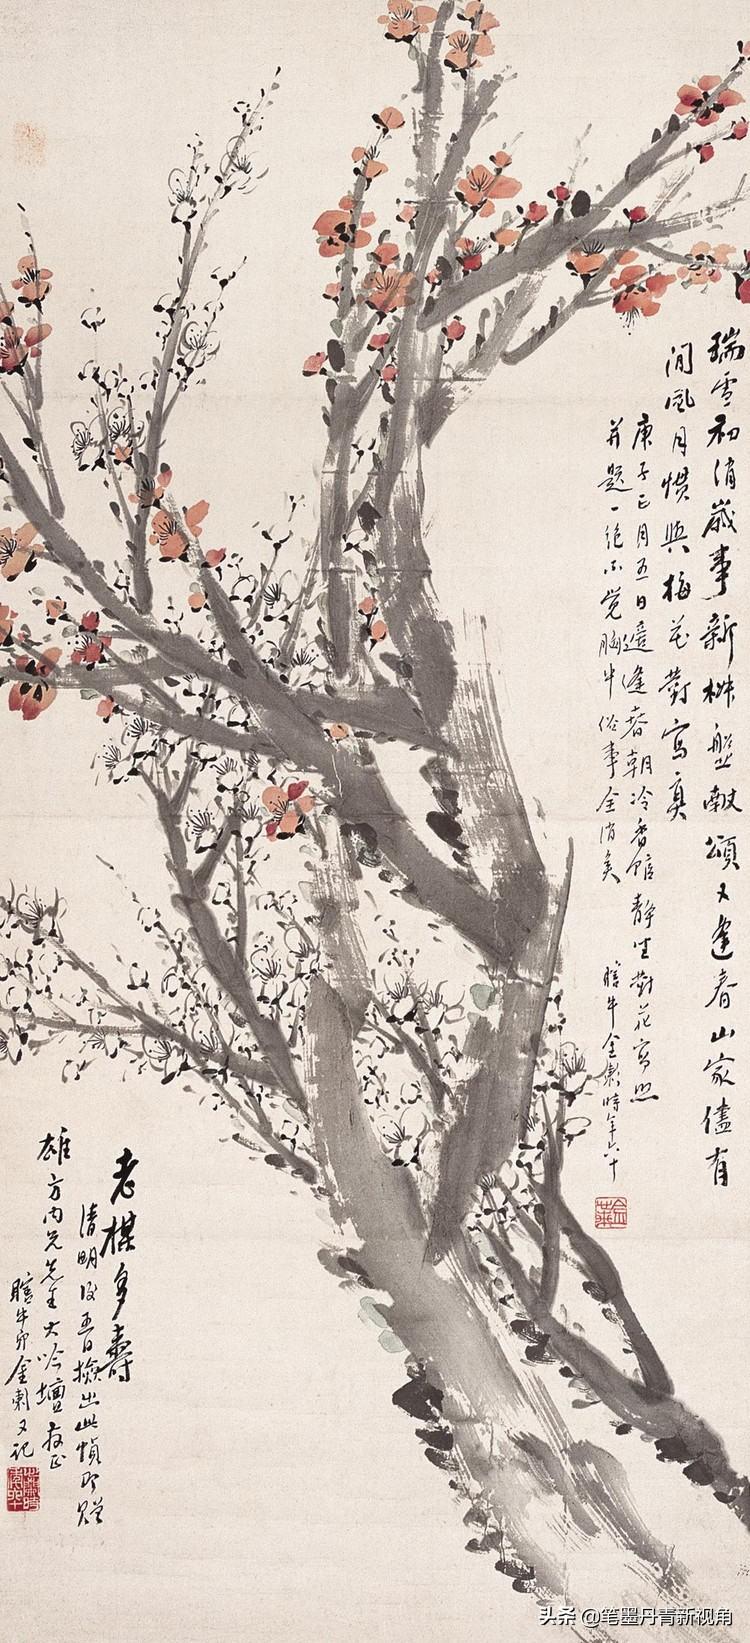 瑞雪初消歲事新椒盤獻頌又逢春山家儘有
閒風月慣與梅花對寫真
庚子正月五日適逢春朝冷香館靜坐對花寫照
并題一絕不覺胸中俗事全消矣
瞎牛金時年六十
老楳多壽
清明後五日撿出此幀即贈
雄方內兄先生大吟壇政正
瞎牛金又記
头条 @笔墨丹青新视角